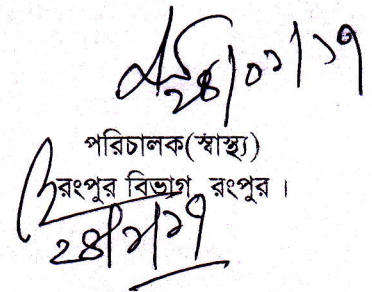 ২৪/০১/১৭
পরিচালক(স্বাস্থ্য)
রংপুর বিভাগ, রংপুর।
২৪/১/১৭